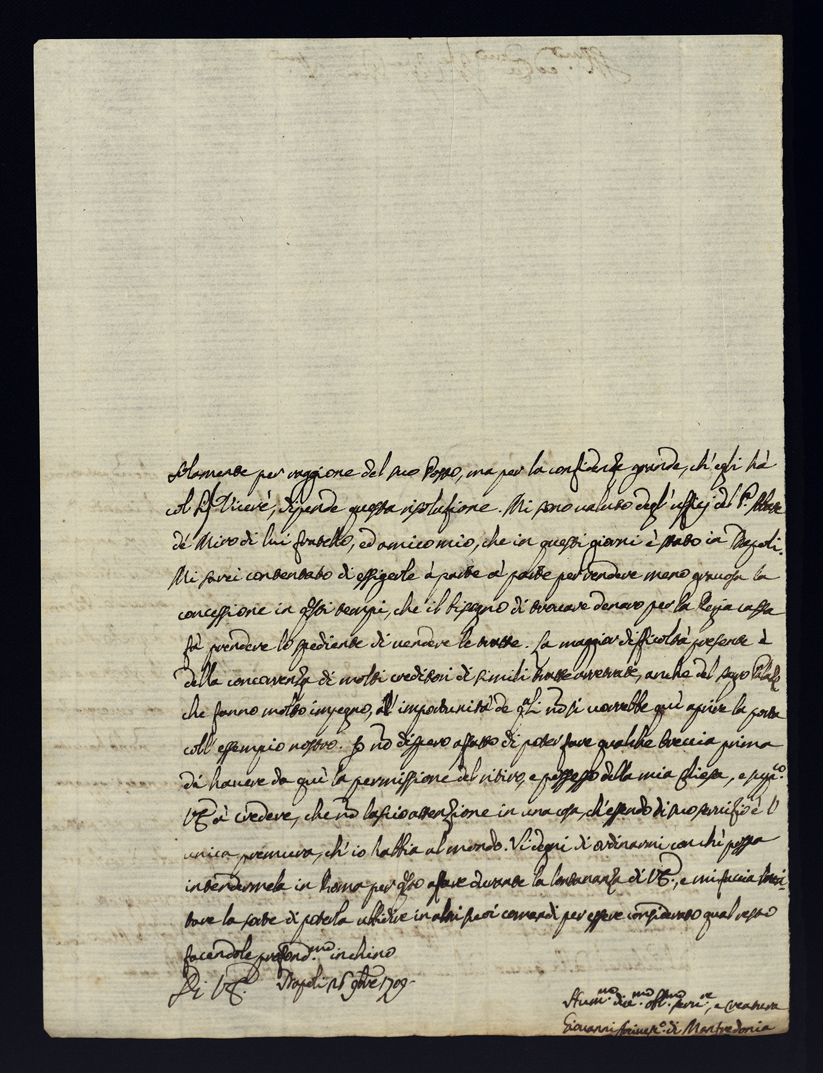 solamente per raggione del suo Posto, ma per la confidenza grande, ch'egli hà
col Sr. Vicerè, dipende questa risoluzione. Mi sono valuto degl'ufficj del P.
de Miro di lui fratello, ed amico mio, che in questi giorni è stato in Napoli.
Mi sarei contentato di essigerle à parte à parte per rendere meno gravosa la
concessione in qsti tempi, che il bisogno di trovare denaro per la Regia cassa
fà prendere lo spediente di vendere le tratte. La maggior difficoltà presente è
della concorrenza di molti creditori di simili tratte arretrate, anche del sagro
che fanno molto impegno, all'importunità de qali nō si vorrebbe quì aprire la porta
coll'essempio nostro. Io nō dispero affatto di poter fare qualche breccia prima
di havere da quì la permissione del ritiro, e possesso della mia Chiesa, e suppco.
VE à credere, che nō lascio attenzione in una cosa, ch'essendo di suo servizio è l'
unica premura, ch'io habbia al mondo. Si degni di ordinarmi con chi possa
intendermela in Roma per qsto affare durante la lontananza di VE, e mi faccia
tare la sorte di poterla ubbidire in altri suoi comandi per essere considerato qual resto
facendole profondmo. inchino
Di VE. Napoli 26 9bre 1709.
Hummo. divmo. obblmo. servre., e creatura
Giovanni Arcivesco. di Manfredonia